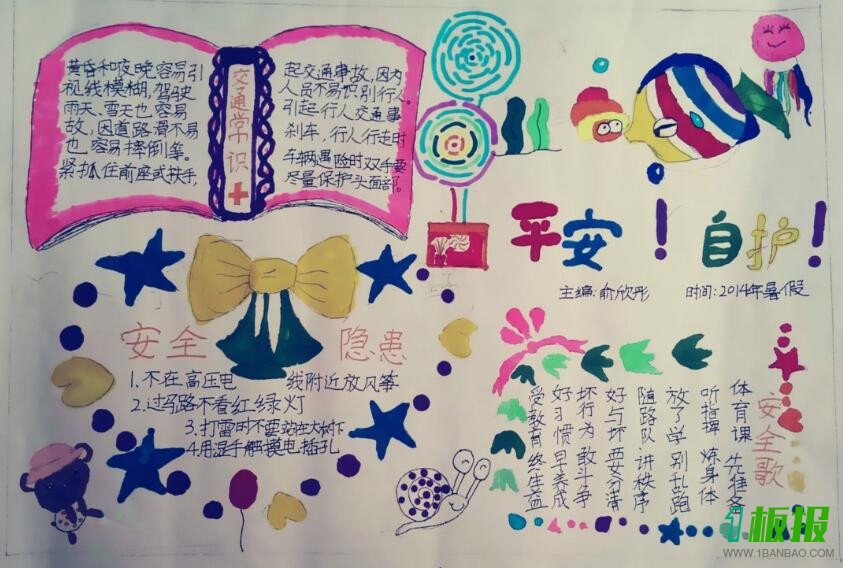 黄昏和夜晚容易引
视线模糊,驾驶
雨天、雪天也容易
故,因道路滑不易
也容易摔倒等。
紧抓住前座或扶手,
交通常识
起交通事故,因为
人员不易识别行人。
引起行人交通事
刹车,行人行走时
车辆遇险时双手要
尽量保护头面部。
平安！自护！
主编:俞欣彤
时间:2014年暑假
安全隐患
1.不在高压电线附近放风筝
2.过马路不看红绿灯
3.打雷时不要站在大树下
4.用湿手触摸电插孔
安全歌
体育课先准备
听指挥炼身体
放了学别乱跑
随路队讲秩序
好与坏要分清
坏行为敢斗争
好习惯早养成
受教育终生益
1板报
WWW.1BANBAO.COM